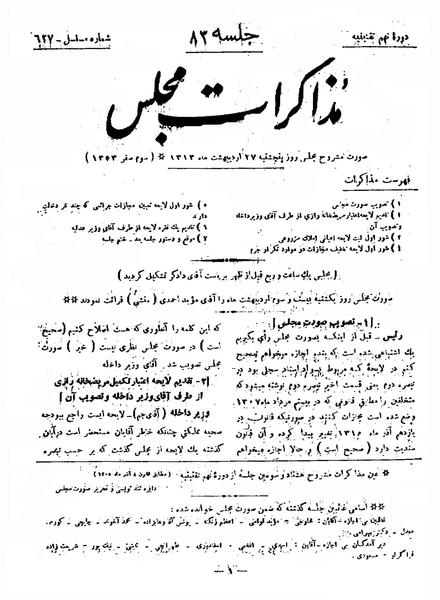 دورهٔ نهم تقنینیه
جلسه ۸۳
شماره مسلسل - ۶۲۷
مذاکرات مجلس
صورت مشروح مجلس روز پنجشنبه ۲۷ اردیبهشت ماه ۱۳۱۳ * (سوم صفر ۱۳۵۳)
فهرست مذاکرات
۱) تصویب صورت مجلس
۲) تقدیم لایحه اعتبار مریضخانه رازی از طرف آقای وزیر داخله
و تصویب آن
۳) شور اول لایحه ثبت اعیانی املاک مزروعی
۴) شور اول لایحه تخفیف مجازات در موارد تکرار جرم
۵) شور اول لایحه تعیین مجازات جرائمی که چند نفر دخالت
دارند
۶) تقدیم یک فقره لایحه از طرف آقای وزیر عدلیه
۷) موقع و دستور جلسه بعد - ختم جلسه
(مجلس یک ساعت و ربع قبل از ظهر بریاست آقای دادگر تشکیل گردید)
صورت مجلس روز یکشنبه بیست و سوم اردیبهشت ماه را آقای مؤید احمدی (منشی) قرائت نمودند **
[۱ - تصویب صورت مجلس]
رئیس - قبل از اینکه بصورت مجلس رأی بگیریم
یک اشتباهی شده است که بنده اجازه میخواهم تصحیح
کنم در لایحه که مربوط باسناد سجل بود در
تبصره دوم یعنی قسمت اخیر تبصره دوم نوشته میشود که
متخلفین را مطابق قانونی که در بیستم مرداد ماه ۱۳۰۷
وضع شده است مجازات کنند در صورتیکه قانون در
یازدهم آذر ماه ۱۳۱۰ تغییر پیدا کرده و آن قانون
سندیت دارد (صحیح است) و حالا اجازه میخواهم
که این کلمه را آنطوری که هست اصلاح کنیم (صحیح
است) در صورت مجلس نظری نیست (خیر) صورت
مجلس تصویب شد
[۲- تقدیم لایحه اعتبار تکمیل مریضخانه رازی
از طرف آقای وزیر داخله و تصویب آن]
وزیر داخله (آقای جم) - لایحه ایست راجع ببودجه
صحیه مملکتی چنانکه خاطر آقایان مستحضر است در آبان
گذشته یک لایحه از مجلس گذشت که بر حسب تبصره
* عین مذاکرات مشروح هشتاد و سومین جلسه از دورهٔ نهم تقنینیه
دایره تند نویسی و تحریر صورت مجلس
** اسامی غائبین جلسه گذشته که ضمن صورت مجلس خوانده شده:
- ۱ -